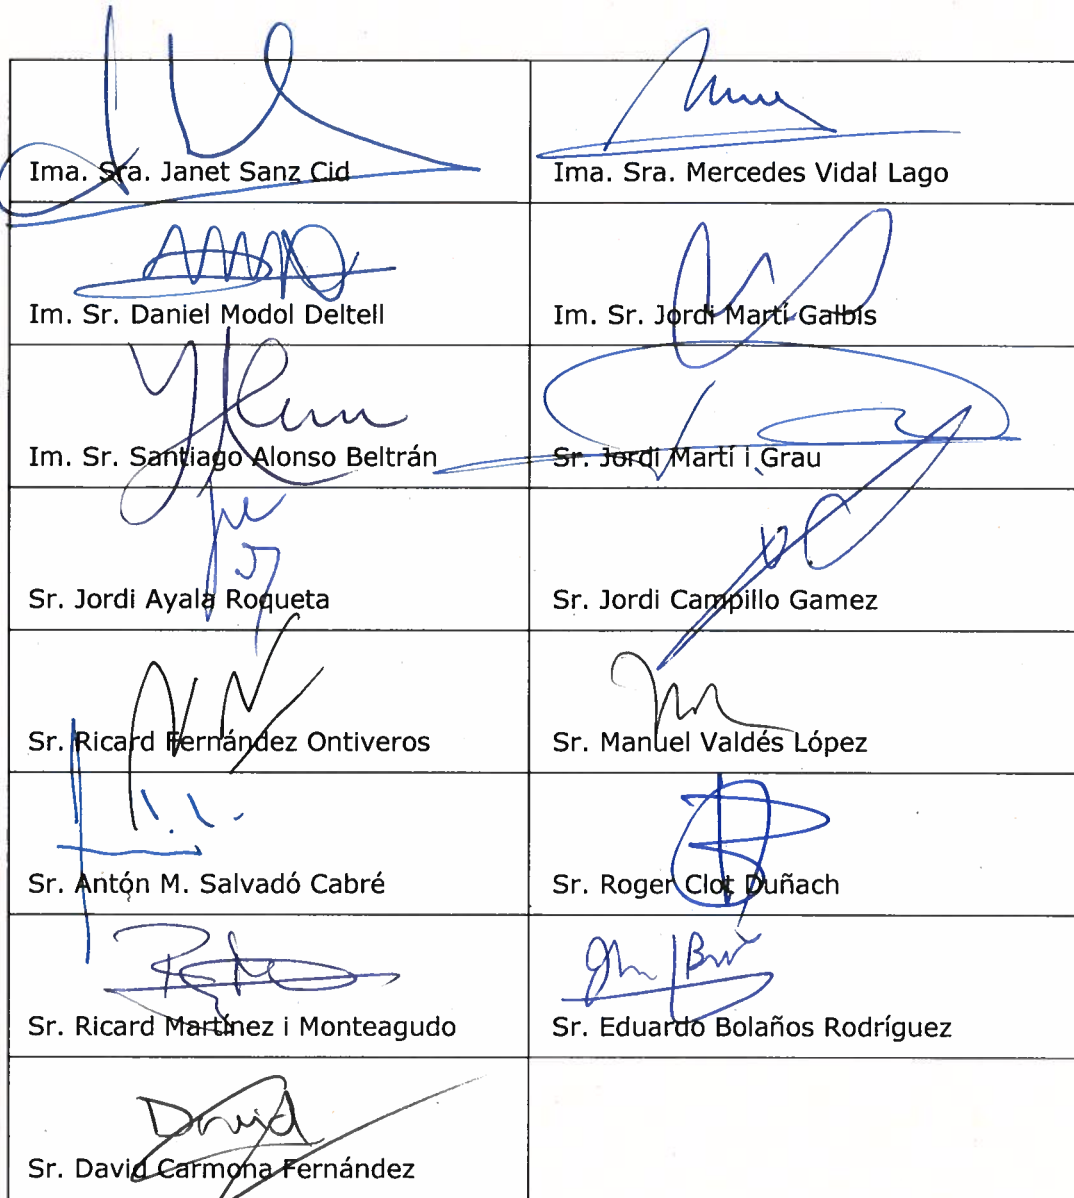 Ima. Sra. Janet Sanz Cid
Ima. Sra. Mercedes Vidal Lago
Im. Sr. Daniel Modol Deltell
Im. Sr. Jordi Martí Galbis
Im. Sr. Santiago Alonso Beltrán
Sr. Jordi Martí i Grau
Sr. Jordi Ayala Roqueta
Sr. Jordi Campillo Gamez
Sr. Ricard Fernández Ontiveros
Sr. Manuel Valdés López
Sr. Antón M. Salvadó Cabré
Sr. Roger Clot Duñach
Sr. Ricard Martínez i Monteagudo
Sr. Eduardo Bolaños Rodríguez
David
Sr. David Carmona Fernández